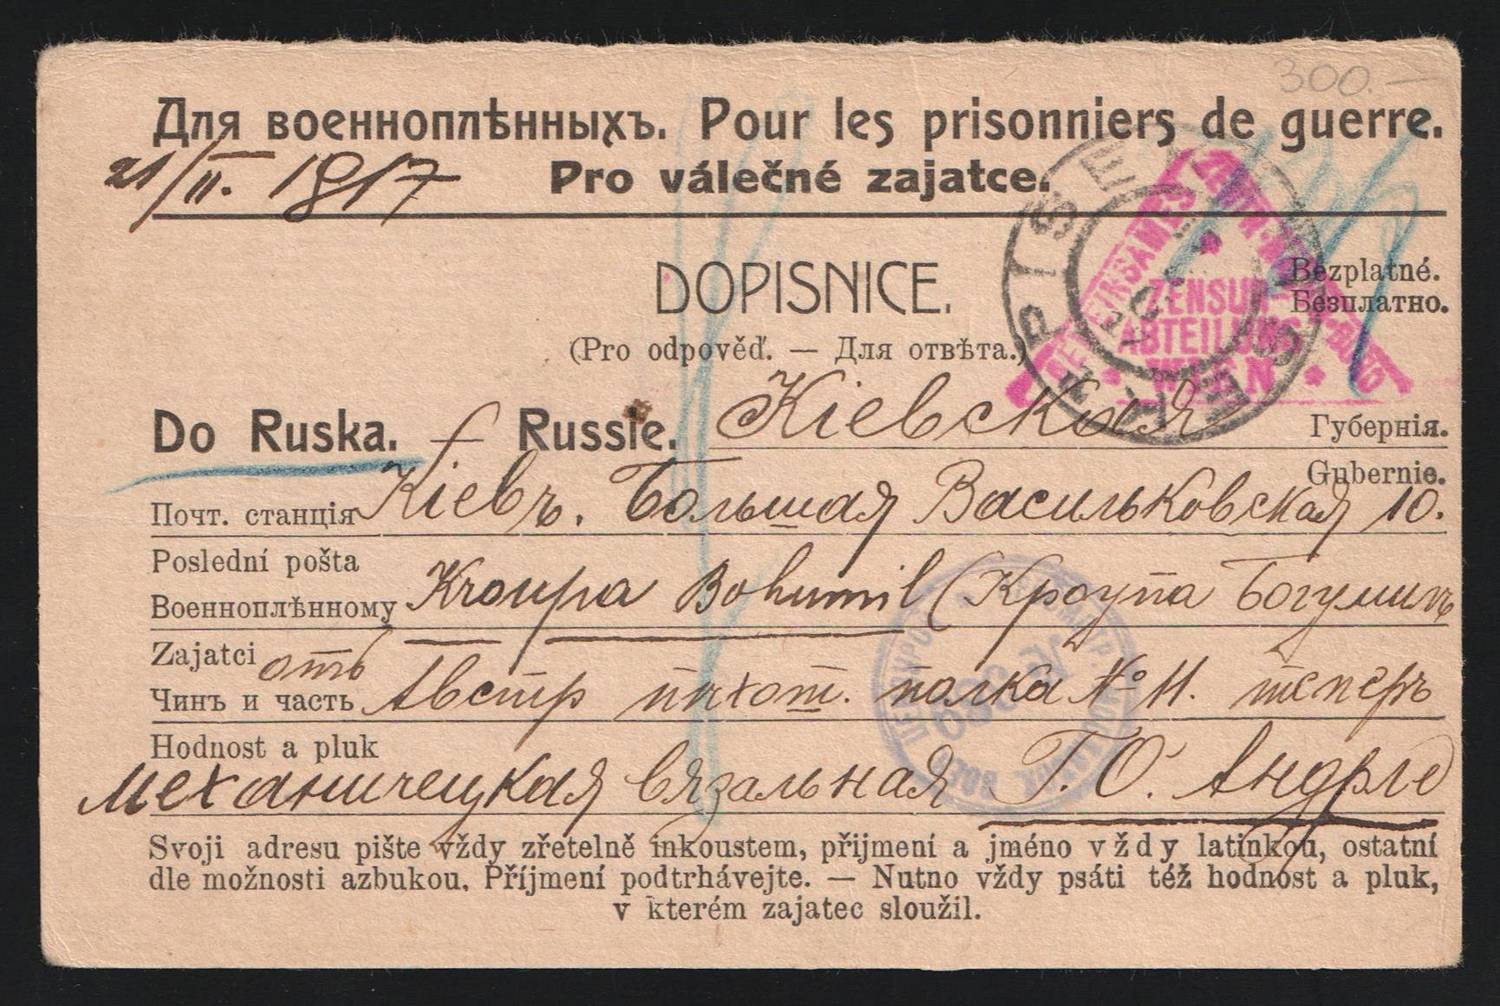 300.—
Для военноплѣнныхъ. Pour les prisonniers de guerre.
21/II. 1917
Pro válečné zajatce.
DOPISNICE.
Bezplatné.
Безплатно.
(Pro odpověď. — Для отвѣта.)
PÍSEK
ZENSUR-
ABTEILUNG
WIEN
Do Ruska. Russie. Кіевская Губернія.
Gubernie.
Почт. станція Кіевъ. Большая Васильковская 10.
Poslední pošta
Военноплѣнному Kroupa Bohumil (Кроупа Богумилъ
Zajatci отъ
Чинъ и часть Австр пѣхот. полка № 11. теперь
Hodnost a pluk
механическая вязальная Г. О. Андрле
Svoji adresu pište vždy zřetelně inkoustem, přijmení a jméno vždy latinkou, ostatní
dle možnosti azbukou. Příjmení podtrhávejte. — Nutno vždy psáti též hodnost a pluk,
v kterém zajatec sloužil.